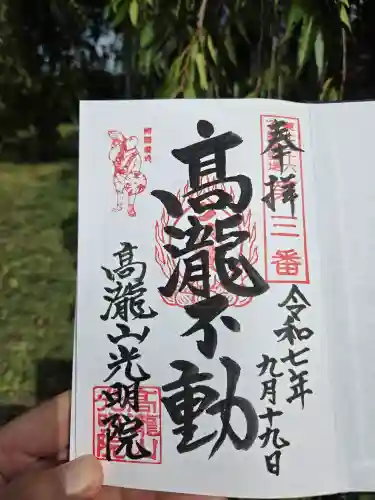 奉拝
三番
令和七年
九月十九日
髙瀧不動
髙瀧山光明院